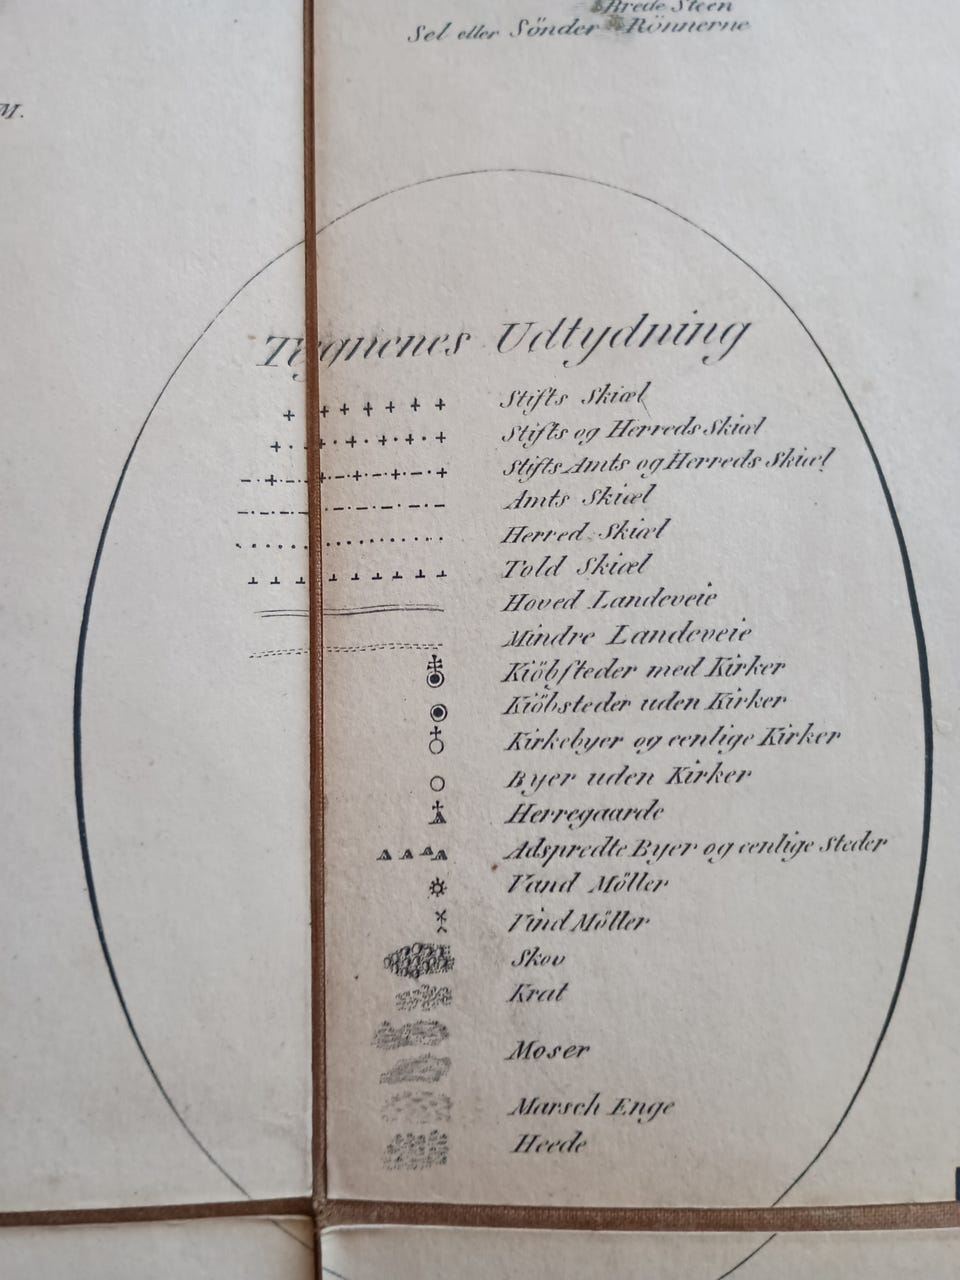 Brede Steen
Sel eller Sönder Rönnerne
M.
Tegnenes Udtydning
Stifts Skiæl
Stifts og Herreds Skiæl
Stifts Amts og Herreds Skiæl
Amts Skiæl
Herred Skiæl
Told Skiæl
Hoved Landeveie
Mindre Landeveie
Kiöbsteder med Kirker
Kiöbsteder uden Kirker
Kirkebyer og eenlige Kirker
Byer uden Kirker
Herregaarde
Adspredte Byer og eenlige Steder
Vand Möller
Vind Möller
Skov
Krat
Moser
Marsch Enge
Heede